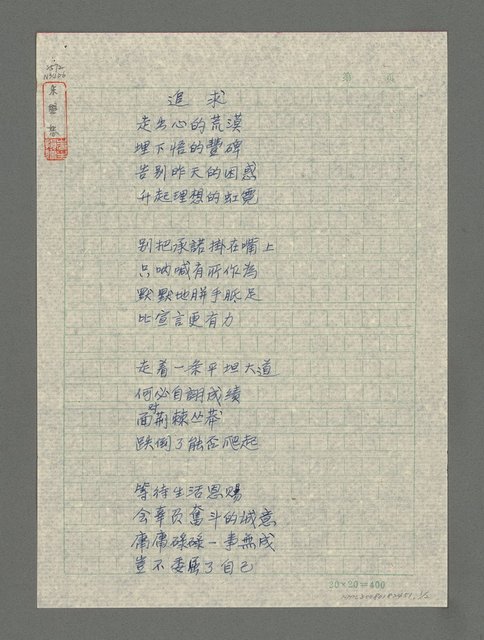 追求
走出心的荒漠
埋下悟的豐碑
告别昨天的困惑
升起理想的虹霓
别把承諾掛在嘴上
只吶喊有所作為
默默地胼手胝足
比宣言更有力
走着一条平坦大道
何必自詡成績
面對荊棘丛莽
跌倒了能否爬起
等待生活恩赐
会辜负奮斗的城意
庸庸碌碌一事無成
豈不委屈了自己
20×20=400